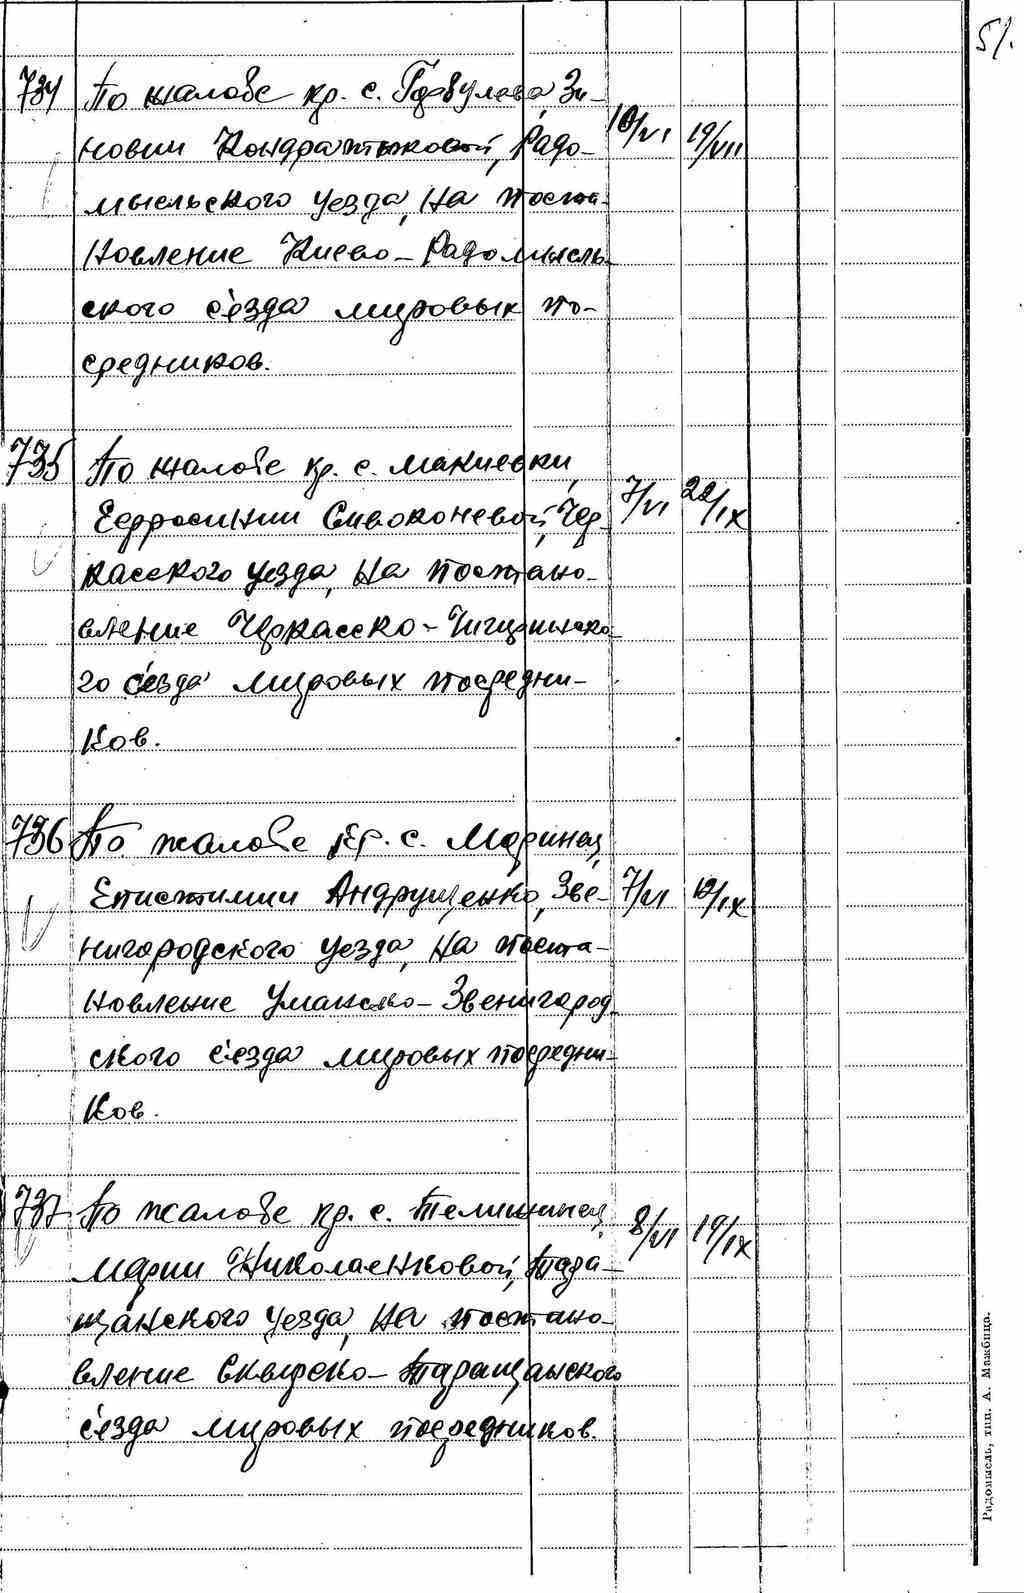 51.
734 По жалобе кр. с. Зи-
новии Кондратюковой, Радо- 10/VI 19/VII
мысльского уезда, на поста-
новление Киево-Радомысль-
ского с'езда мировых по-
средников.
735 По жалобе кр. с. Макиевки,
Ефросинии Сивоконевой, Чер- 7/VI 22/IX
касского уезда, на постано-
вление Черкасско-Чигиринско-
го с'езда мировых посредни-
ков.
736 По жалобе кр. с. Моринец,
Епистимии Андрущенко, Зве- 7/VI 19/IX
нигородского уезда, на поста-
новление Уманско-Звенигород-
ского с'езда мировых посредни-
ков.
737 По жалобе кр. с. Телижинец,
Марии Николаенковой, Тара- 8/VI 19/IX
щанского уезда, на постано-
вление Сквирско-Таращанского
с'езда мировых посредников.
Радомысль, тип. А. Мажбица.